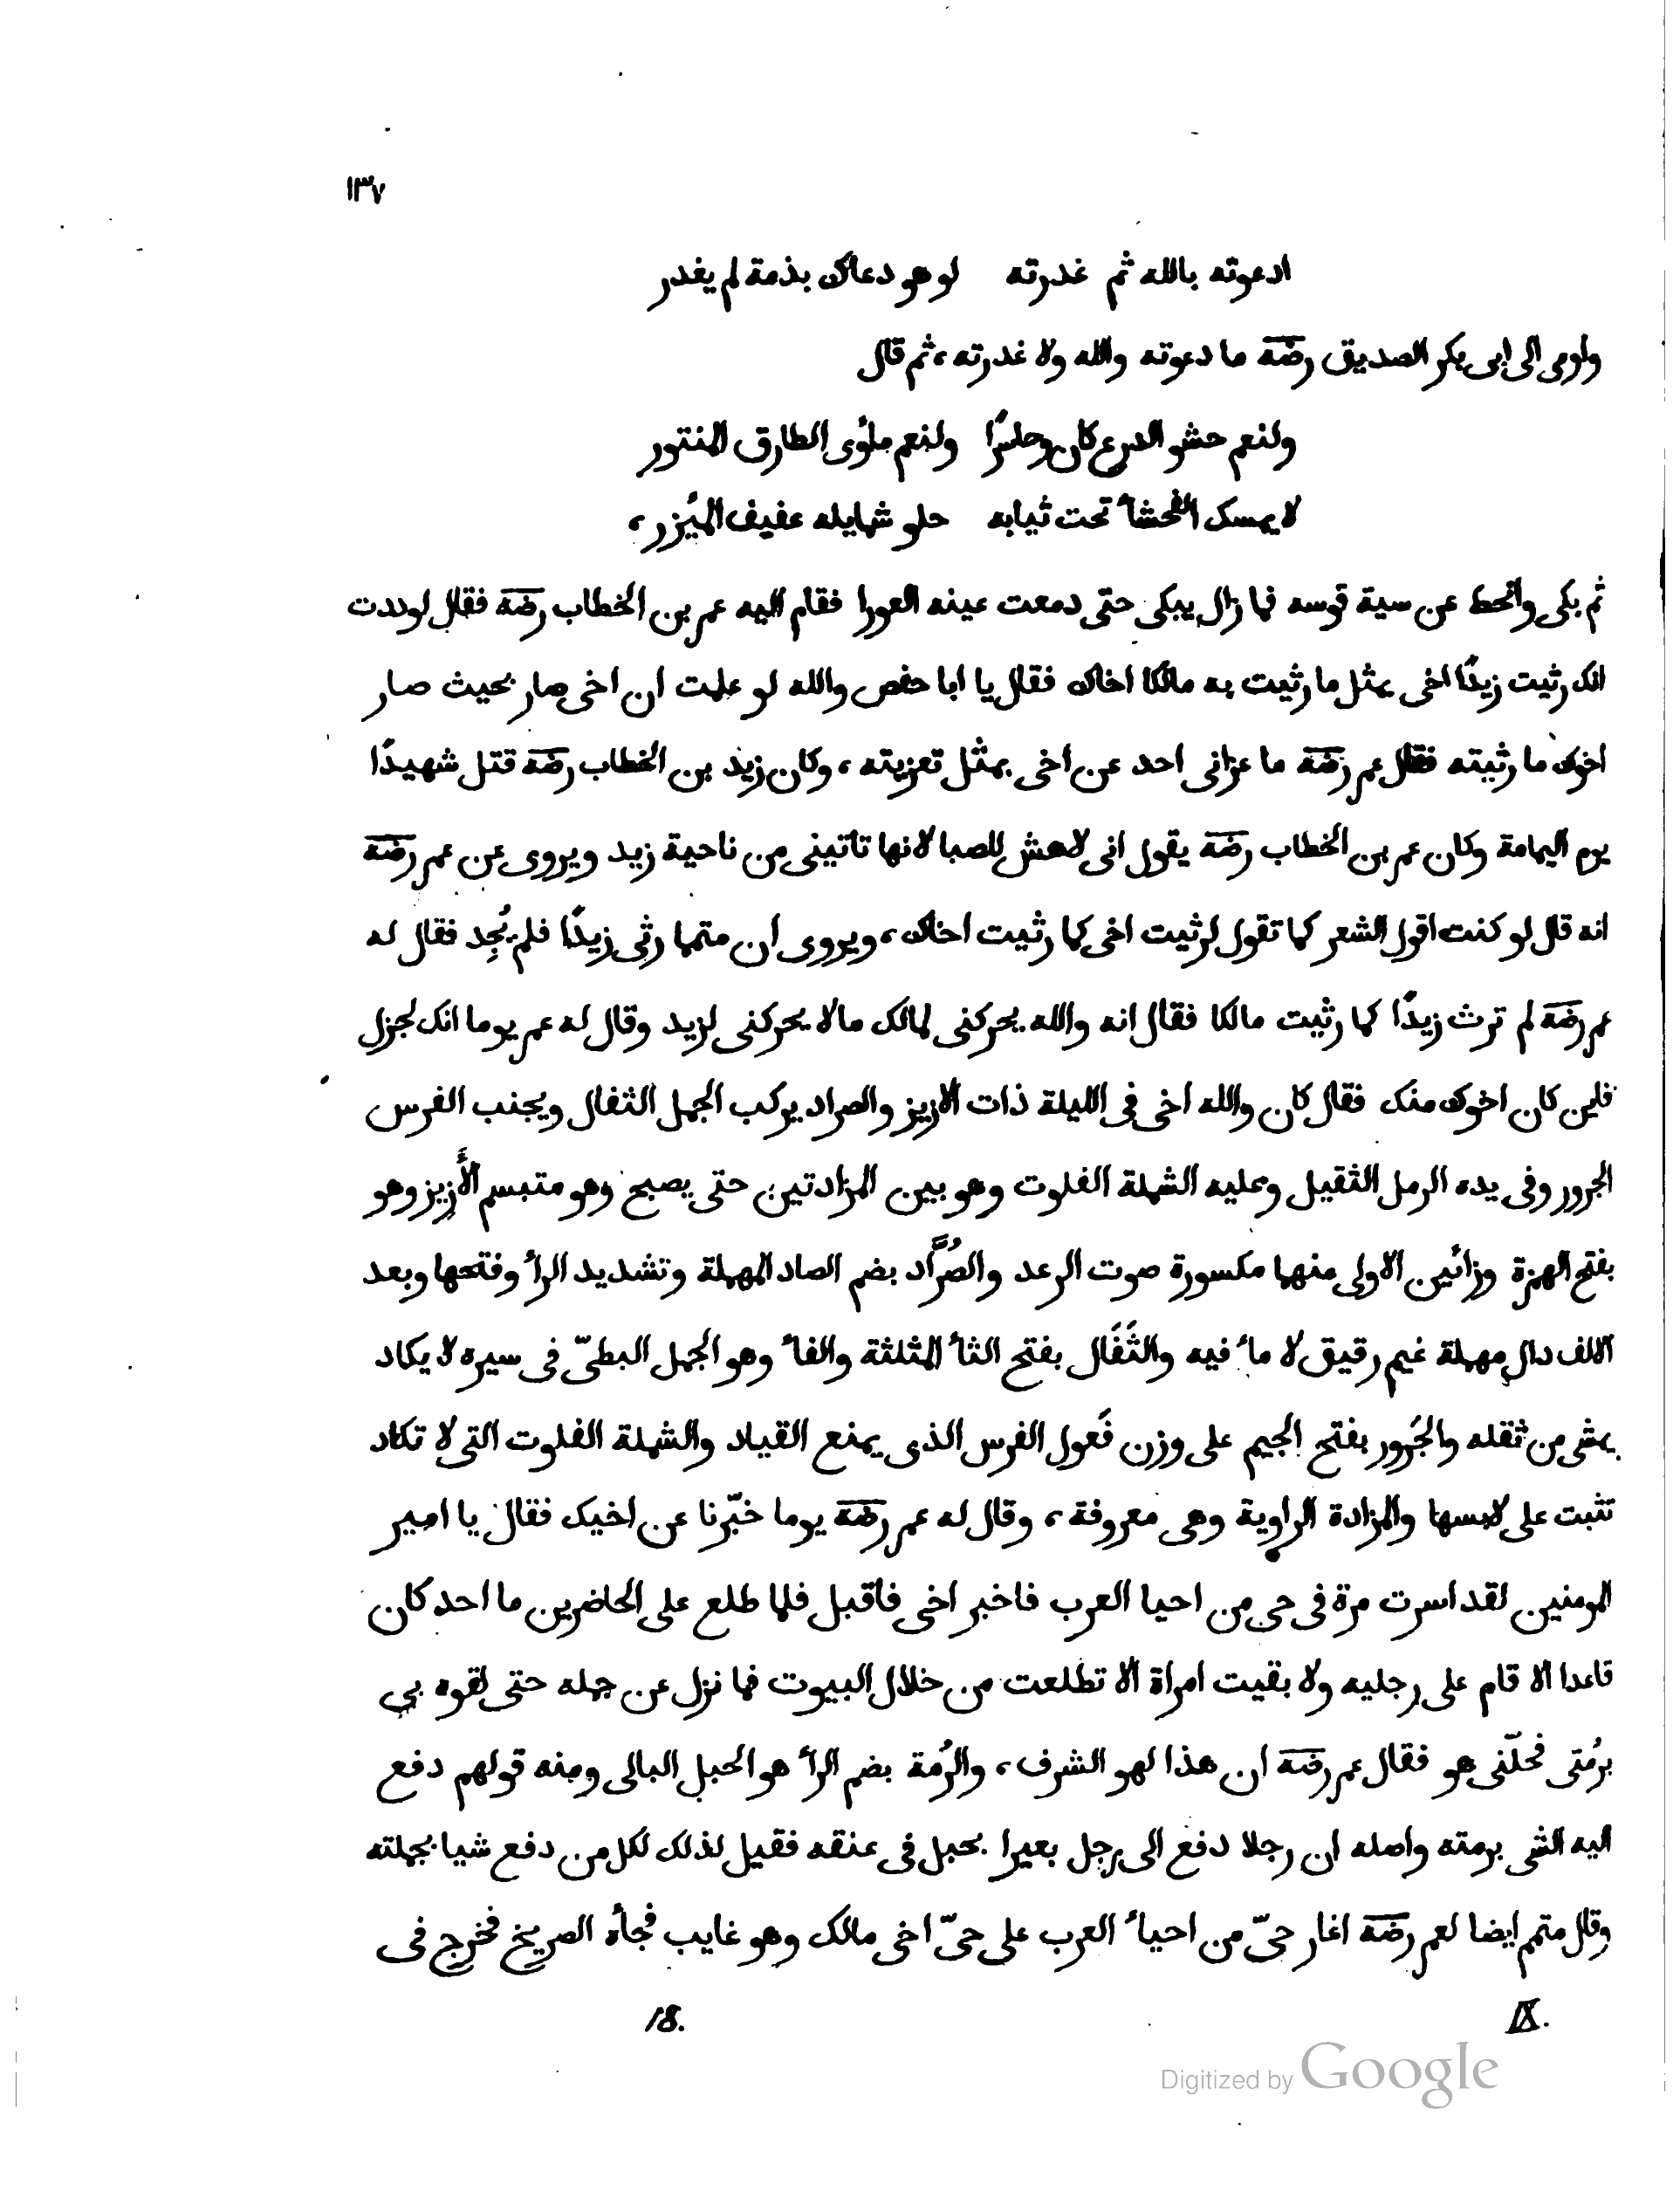 ١٣٧
ادعوته بالله ثم غدرته لو هو دعاك بذمة لم يغدر
واومى الى ابى بكر الصديق رضّه ما دعوته والله ولا غدرته، ثم قال
ولنعم حشو الدرع كان وحاسرًا ولنعم مأوى الطارق المتنور
لا يمسك الفحشأ تحت ثيابه حلو شمايله عفيف المئزر،
ثم بكى وانحط عن سية قوسه فما زال يبكى حتى دمعت عينه العورا فقام اليه عمر بن الخطاب رضّه فقال لوددت
انك رثيت زيدًا اخى بمثل ما رثيت به مالكا اخاك فقال يا ابا حفص والله لو علمت ان اخى صار بحيث صار
اخوك ما رثيته فقال عمر رضّه ما عزانى احد عن اخى بمثل تعزيته، وكان زيد بن الخطاب رضّه قتل شهيدًا
يوم اليمامة وكان عمر بن الخطاب رضّه يقول انى لاهش للصبا لانها تاتينى من ناحية زيد ويروى عن عمر رضّه
انه قال لو كنت اقول الشعر كما تقول لرثيت اخى كما رثيت اخاك، ويروى ان متمما رثى زيدًا فلم يُجِد فقال له
عمر رضّه لم ترث زيدًا كما رثيت مالكا فقال انه والله يحركنى لمالك مالا يحركنى لزيد وقال له عمر يوما انك لجزل
فاين كان اخوك منك فقال كان والله اخى فى الليلة ذات الازيز والصراد يركب الجمل الثفال ويجنب الفرس
الجرور وفى يده الرمل الثقيل وعليه الشملة الفلوت وهو بين المزادتين حتى يصبح وهو متبسم الأَزيز وهو
بفتح الهمزة وزائين الاولى منهما مكسورة صوت الرعد والصُرَّاد بضم الصاد المهملة وتشديد الرأ وفتحها وبعد
الالف دال مهملة غيم رقيق لا مأ فيه والثَفَال بفتح الثأ المثلثة والفأ وهو الجمل البطىّ فى سيره لا يكاد
يمشى من ثقله والجُرور بفتح الجيم على وزن فَعول الفرس الذى يمنع القياد والشملة الفلوت التى لا تكاد
تثبت على لابسها والمزادة الراوية وهى معروفة، وقال له عمر رضّه يوما خبّرنا عن اخيك فقال يا امير
المومنين لقد اسرت مرة فى حى من احيا العرب فاخبر اخى فاقبل فلما طلع على الحاضرين ما احد كان
قاعدا الا قام على رجليه ولا بقيت امراة الا تطلعت من خلال البيوت فما نزل عن جمله حتى لقوه بى
برُمتى فحلّنى هو فقال عمر رضّه ان هذا لهو الشرف، والرُمة بضم الرأ هو الحبل البالى ومنه قولهم دفع
اليه الشى برمته واصله ان رجلا دفع الى رجل بعيرا بحبل فى عنقه فقيل لذلك لكل من دفع شيا بجملته
وقال متمم ايضا لعمر رضّه اغار حىّ من احيأ العرب على حىّ اخى مالك وهو غايب فجأه الصريخ فخرج فى
IX. 18.
Digitized by Google